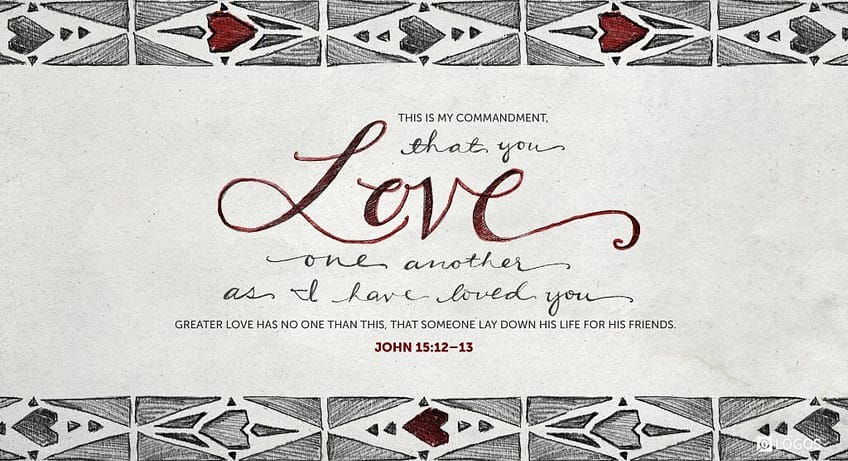 THIS IS MY COMMANDMENT,
that you
Love
one another
as I have loved you
GREATER LOVE HAS NO ONE THAN THIS, THAT SOMEONE LAY DOWN HIS LIFE FOR HIS FRIENDS.
JOHN 15:12–13
LOGOS